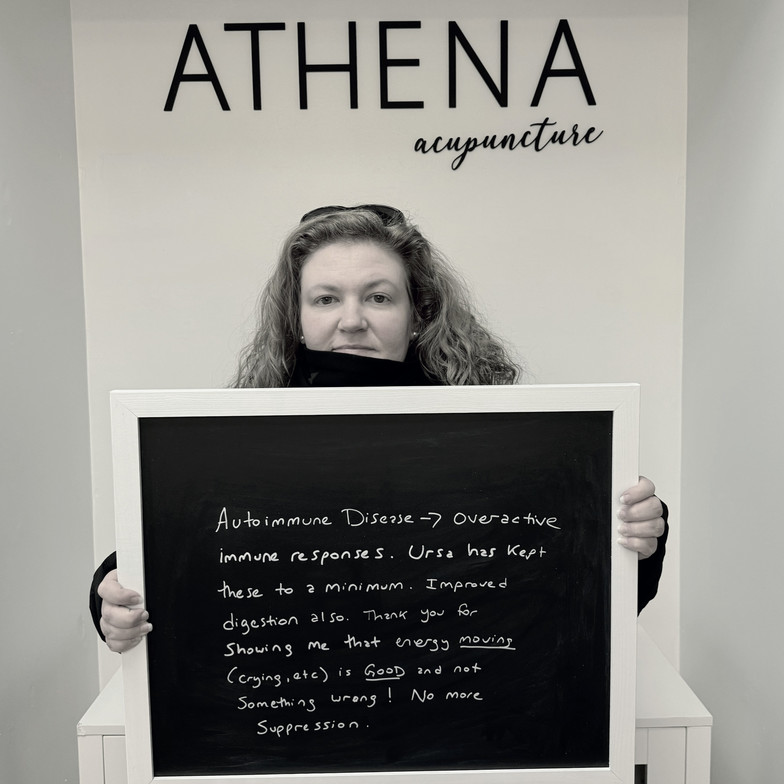 ATHENA
acupuncture
Autoimmune Disease -> overactive
immune responses. Ursa has kept
these to a minimum. Improved
digestion also. Thank you for
showing me that energy moving
(crying, etc) is GOOD and not
Something wrong! No more
Suppression.